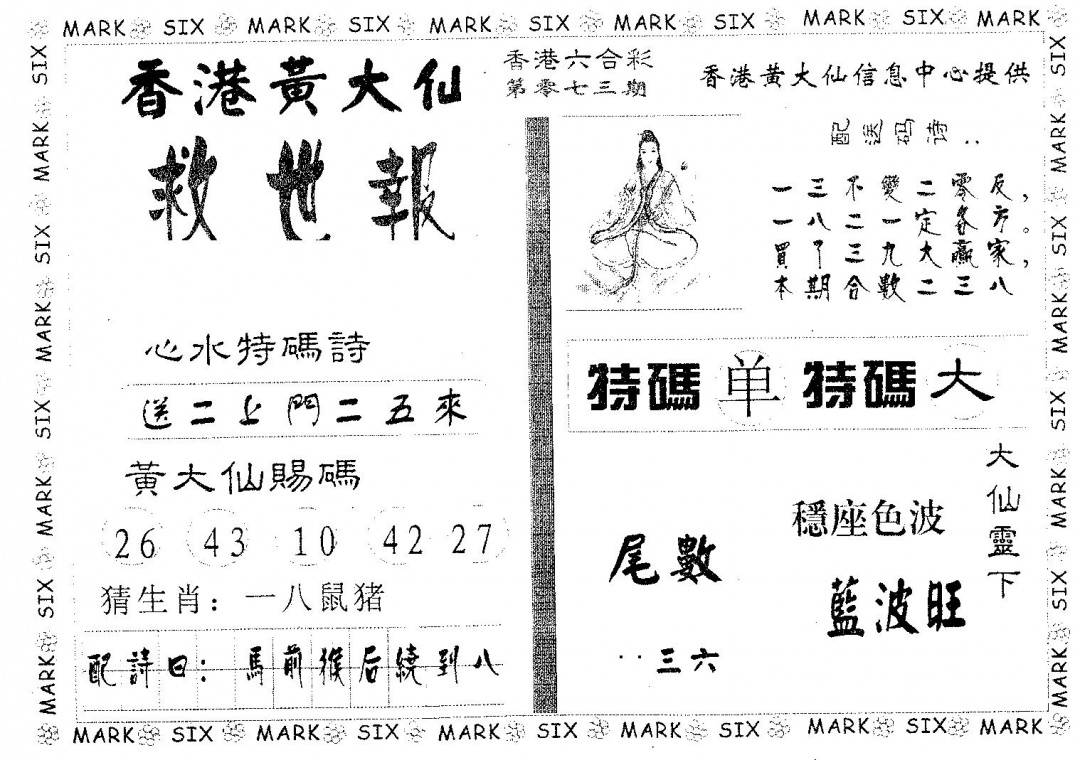 MARK SIX MARK SIX MARK SIX MARK SIX MARK SIX MARK
香港黃大仙
救世報
心水特碼詩
送二上門二五來
黃大仙賜碼
26 43 10 42 27
猜生肖：一八鼠猪
配詩曰：馬前猴后繞到八
香港六合彩
第零七三期
香港黄大仙信息中心提供
配送码诗：
一三不變二零反，
一八二一定各方。
買了三九大贏家，
本期合數二三八
特碼单特碼大
大仙靈下
穩座色波
藍波旺
尾數
三六
SIX MARK SIX MARK SIX MARK SIX MARK SIX MARK SIX MARK
SIX MARK SIX MARK SIX MARK SIX MARK
MARK SIX MARK SIX MARK SIX MARK SIX MARK SIX MARK